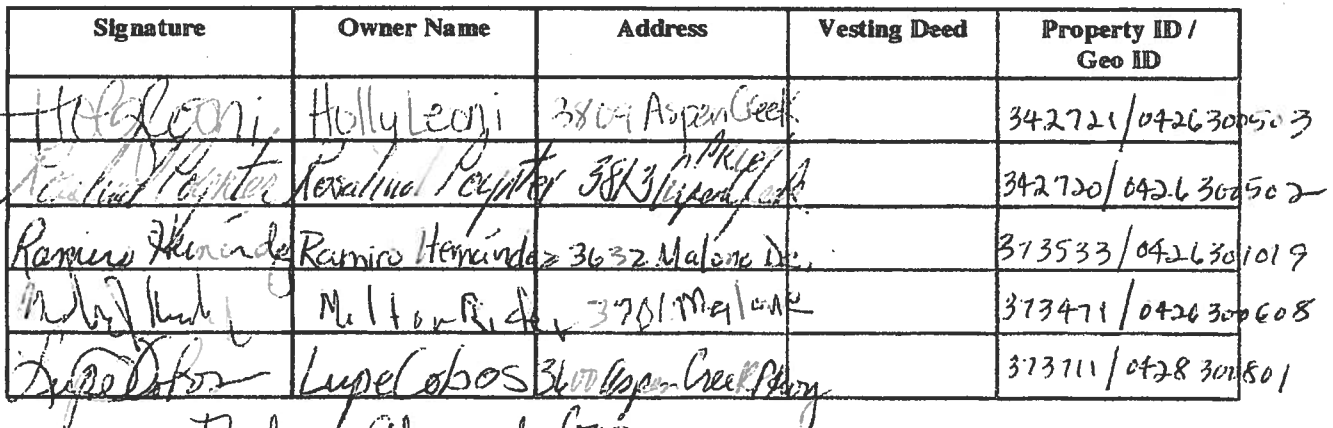 Signature Owner Name Address Vesting Deed Property ID / Geo ID
Holly Leoni Holly Leoni 3809 Aspen Creek 342721/0426300503
Rosalind Poynter Rosalind Poynter 3813 Aspen Creek Pkwy 342720/0426300502
Ramiro Hernández Ramiro Hernández 3632 Malone Dr. 373533/0426301019
Milton 3701 Malone 373471/0426300608
Lupe Cobos Lupe Cobos 3600 Aspen Creek Pkwy 373711/0428300801